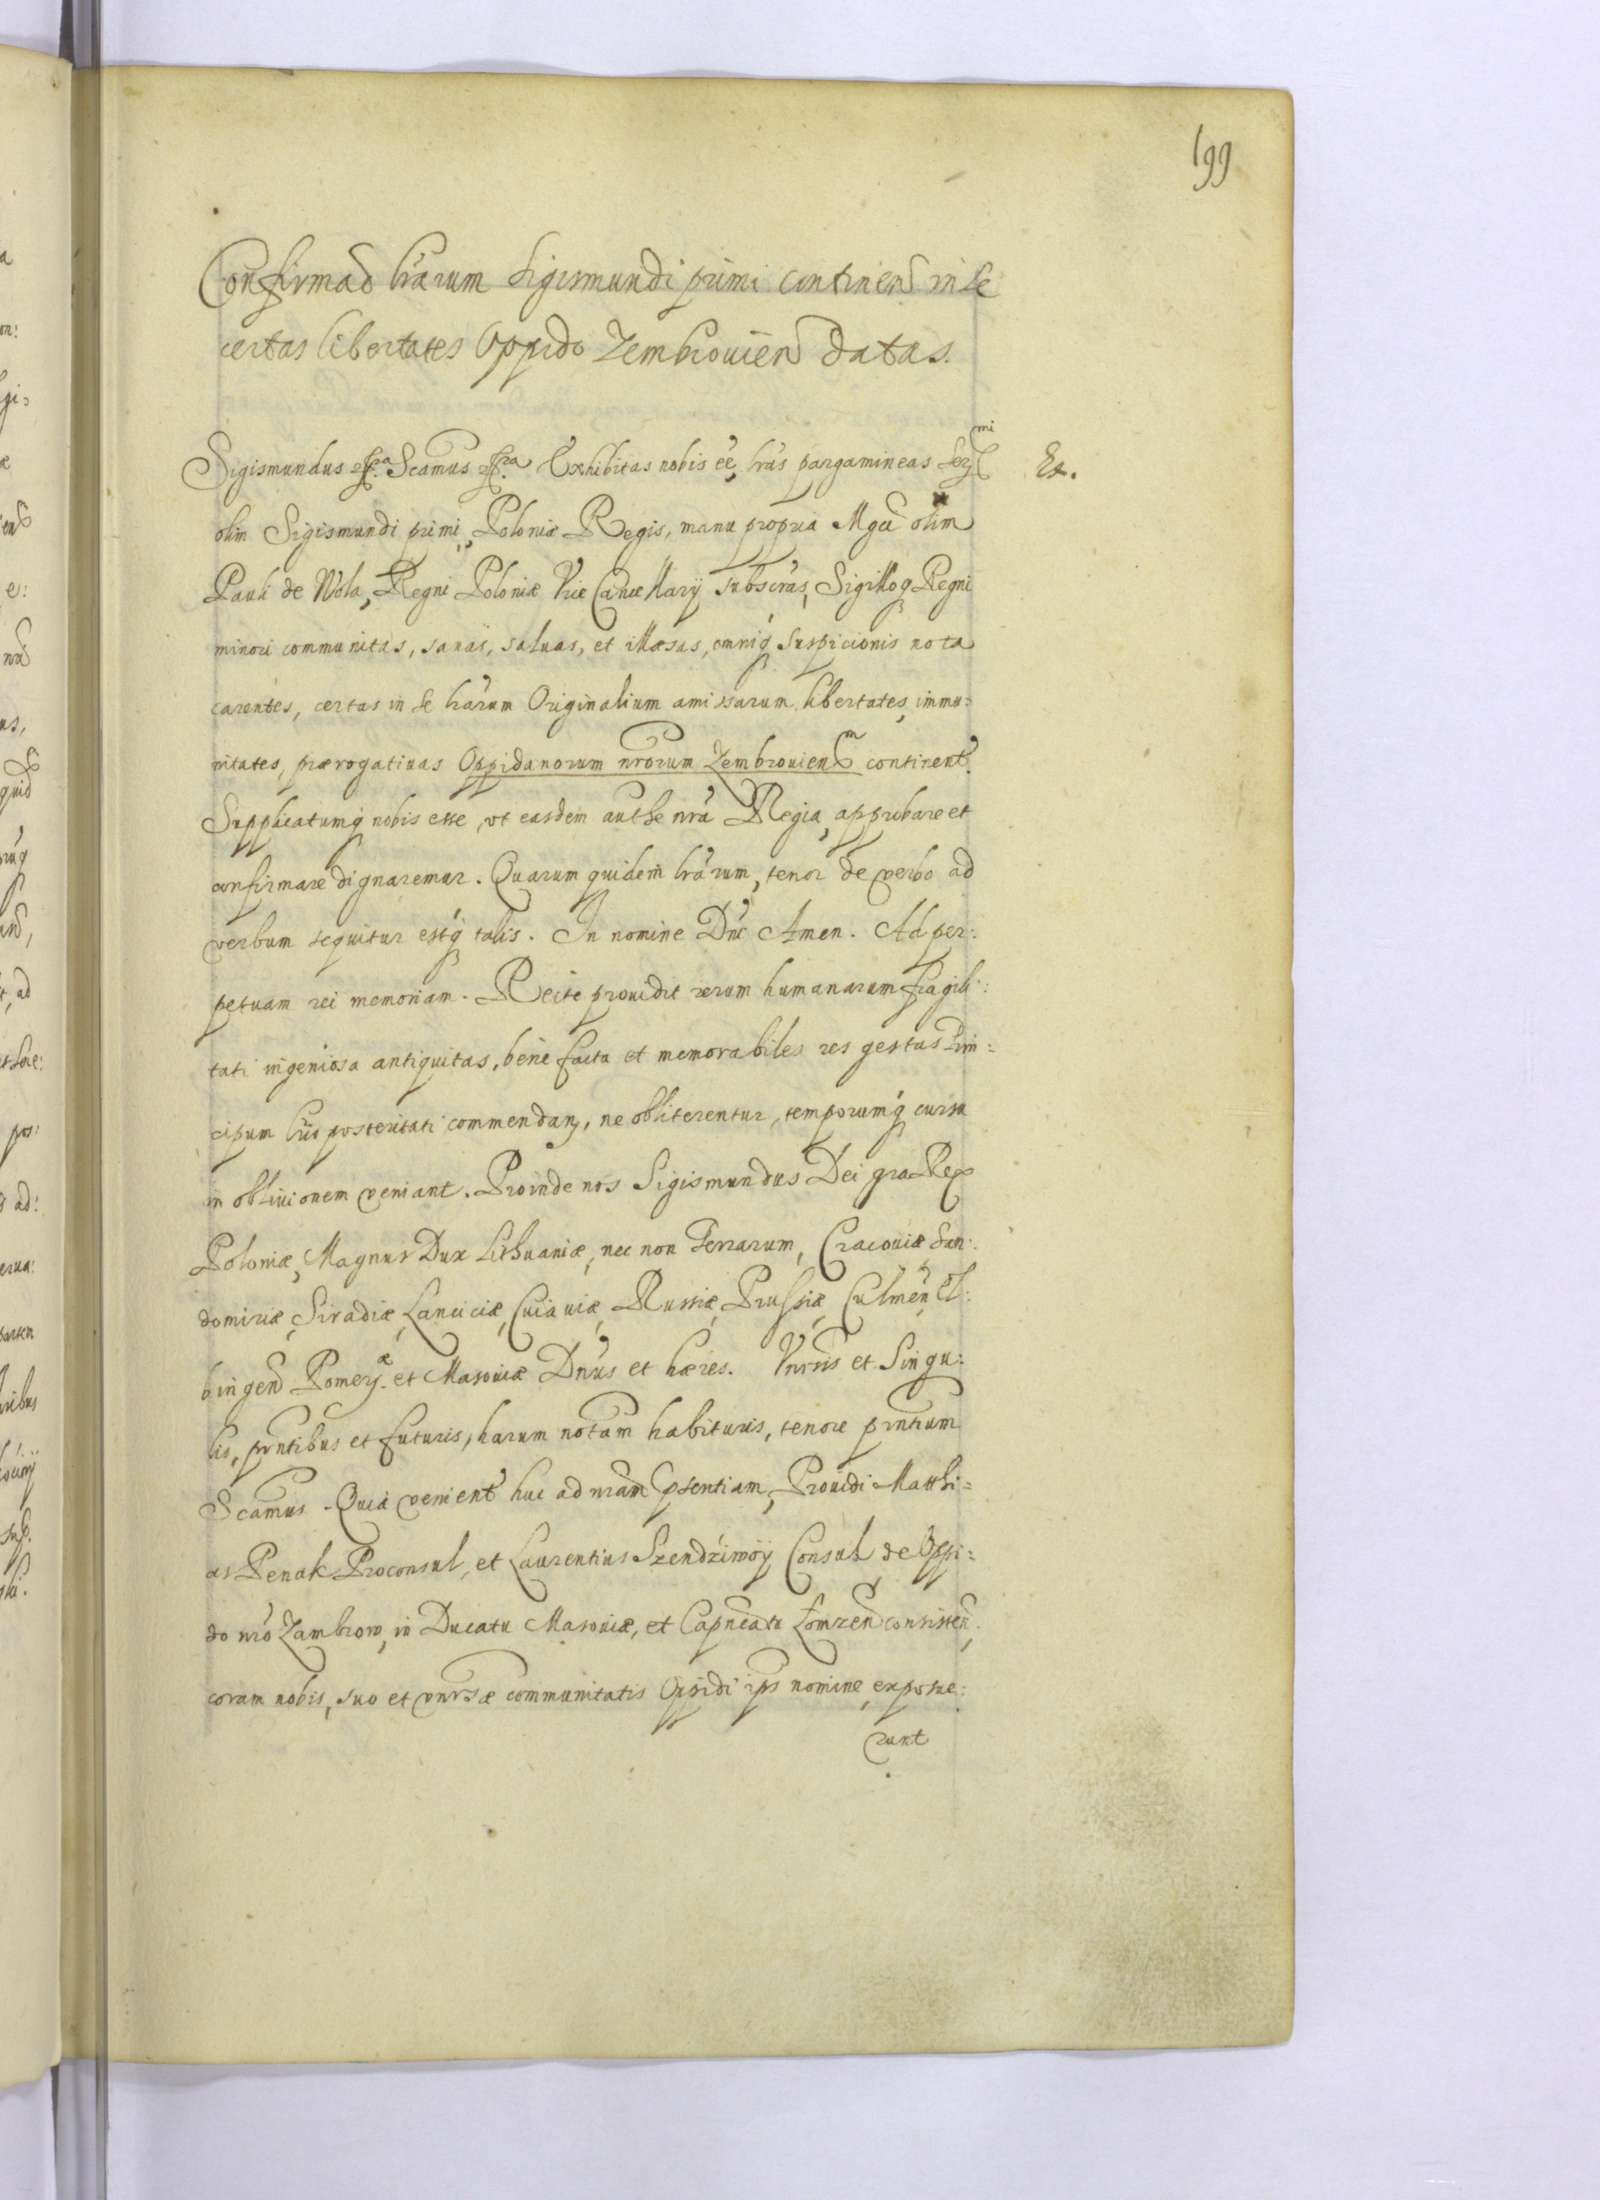 199
Confirmaõ lrãrum Sigismundi primi continen in se
certas libertates Oppido Zembrouien datas.
Sigismundus Scamus Exhibitas nobis eẽ, lrãs pargamineas Ser mi Ex.
olim Sigismundi primi, Poloniæ Regis, manu propria Mgci olim
Pauli de Wola, Regni Poloniæ Vice Cancellarij subscras, Sigilloq Regni
minori communitas, sanas, saluas, et illæsas, omniq̃ Suspicionis nota
carentes, certas in se lrãrum Originalium amissarum libertates, immu:
nitates, prærogatiuas Oppidanorum nrõrum Zembrouien m continent.
Supplicatumq̃ nobis esse, vt easdem authe nrã Regia, approbare et
confirmare dignaremur. Quarum quidem lrãrum, tenor de verbo ad
verbum sequitur estq̃ talis. In nomine Dnĩ Amen. Ad per:
petuam rei memoriam. Recte prouidit rerum humanarum fragili:
tati ingeniosa antiquitas, bene facta et memorabiles res gestas Prin=
cipum lrĩs posteritati commendan, ne obliterentur, temporumq̃ cursu
in obliuionem veniant. Proinde nos Sigismundus Dei gra Rex
Poloniæ, Magnus Dux Lithuaniæ, nec non Terrarum, Cracouiæ San:
domiriæ, Siradiæ, Lanciciæ, Cuiauiæ, Russiæ, Prussiæ, Culmen, El:
bingen Pomer æ et Masouiæ Dnũs et hæres. Vnrsis et Singu:
lis, prntibus et futuris, harum notam habituris, tenore prntium
Scamus. Quia venient huc ad nram psentiam, Prouidi Matthi=
as Penak Proconsul, et Laurentius Szendziwoÿ Consul de Oppi=
do nrõ Zambrow, in Ducatu Masouiæ, et Capneatu Łomzen consisten,
coram nobis, suo et vnrsæ communitatis Oppidi ips nomine, exposue:
runt